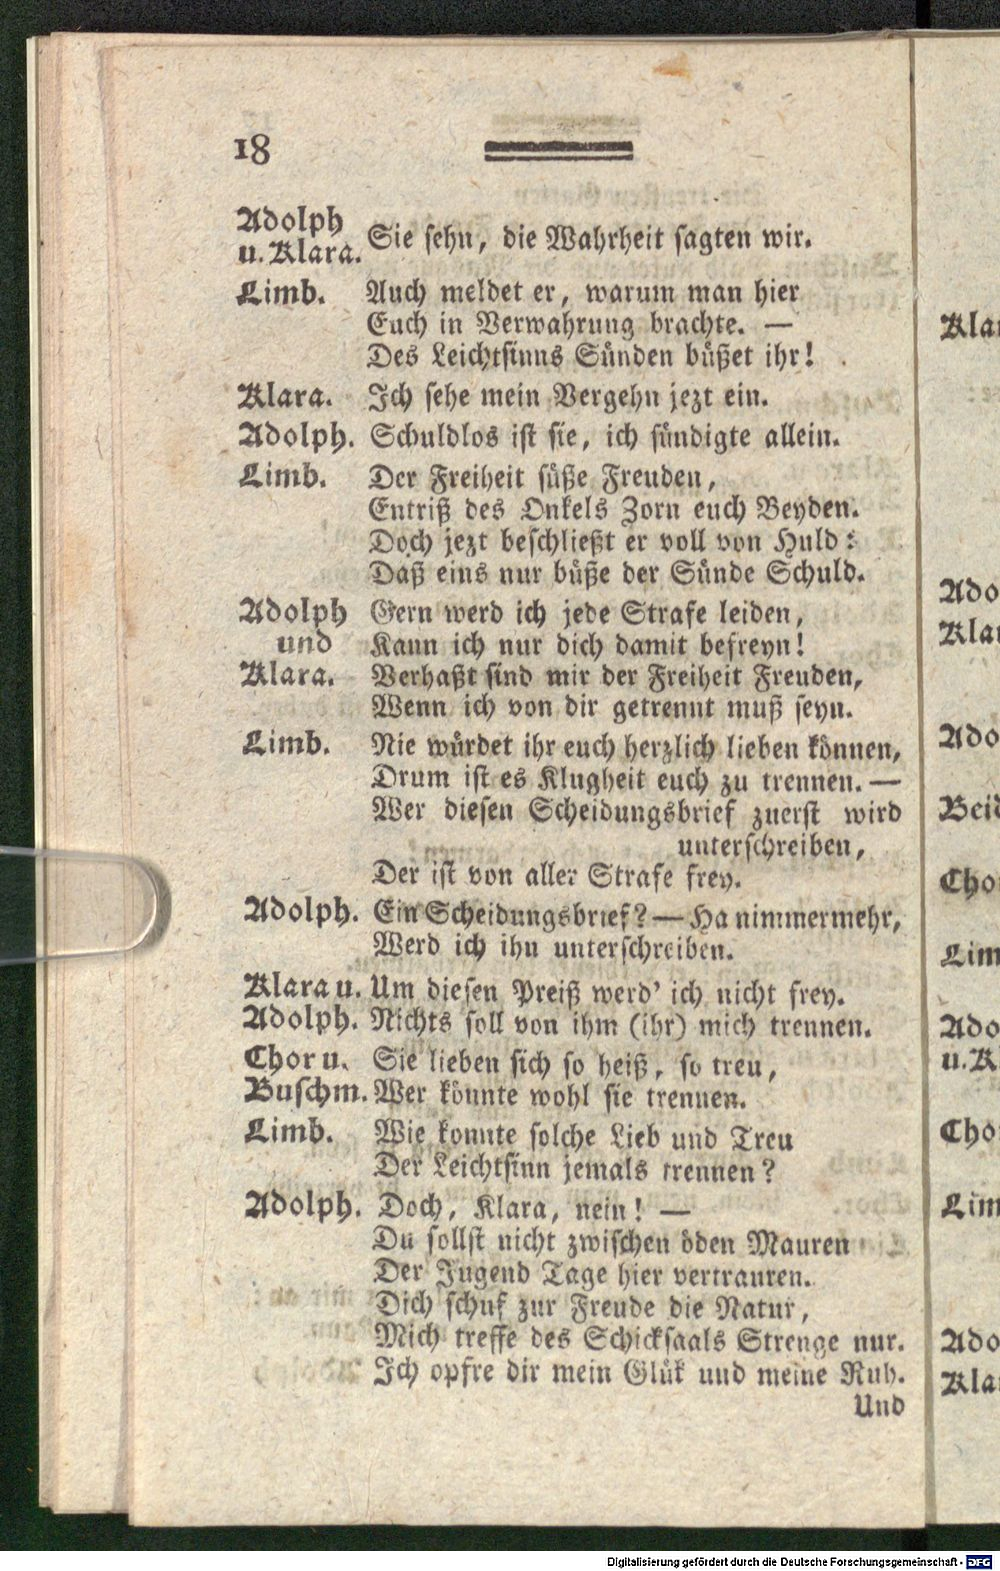 18
Adolph
u. Klara. Sie sehn, die Wahrheit sagten wir.
Limb. Auch meldet er, warum man hier
Euch in Verwahrung brachte. —
Des Leichtsinns Sünden büßet ihr!
Klara. Ich sehe mein Vergehn jezt ein.
Adolph. Schuldlos ist sie, ich sündigte allein.
Limb. Der Freiheit süße Freuden,
Entriß des Onkels Zorn euch Beyden.
Doch jezt beschließt er voll von Huld:
Daß eins nur büße der Sünde Schuld.
Adolph Gern werd ich jede Strafe leiden,
und Kann ich nur dich damit befreyn!
Klara. Verhaßt sind mir der Freiheit Freuden,
Wenn ich von dir getrennt muß seyn.
Limb. Nie würdet ihr euch herzlich lieben können,
Drum ist es Klugheit euch zu trennen. —
Wer diesen Scheidungsbrief zuerst wird
unterschreiben,
Der ist von aller Strafe frey.
Adolph. Ein Scheidungsbrief? — Ha nimmermehr,
Werd ich ihn unterschreiben.
Klara u. Um diesen Preiß werd' ich nicht frey.
Adolph. Nichts soll von ihm (ihr) mich trennen.
Chor u. Sie lieben sich so heiß, so treu,
Buschm. Wer könnte wohl sie trennen.
Limb. Wie konnte solche Lieb und Treu
Der Leichtsinn jemals trennen?
Adolph. Doch, Klara, nein! —
Du sollst nicht zwischen öden Mauren
Der Jugend Tage hier vertrauren.
Dich schuf zur Freude die Natur,
Mich treffe des Schicksaals Strenge nur.
Ich opfre dir mein Glük und meine Ruh.
Und
Klar
Ado
Klar
Ado
Beid
Cho
Lim
Ado
u. K
Cho
Lim
Ado
Klar
Digitalisierung gefördert durch die Deutsche Forschungsgemeinschaft - DFG